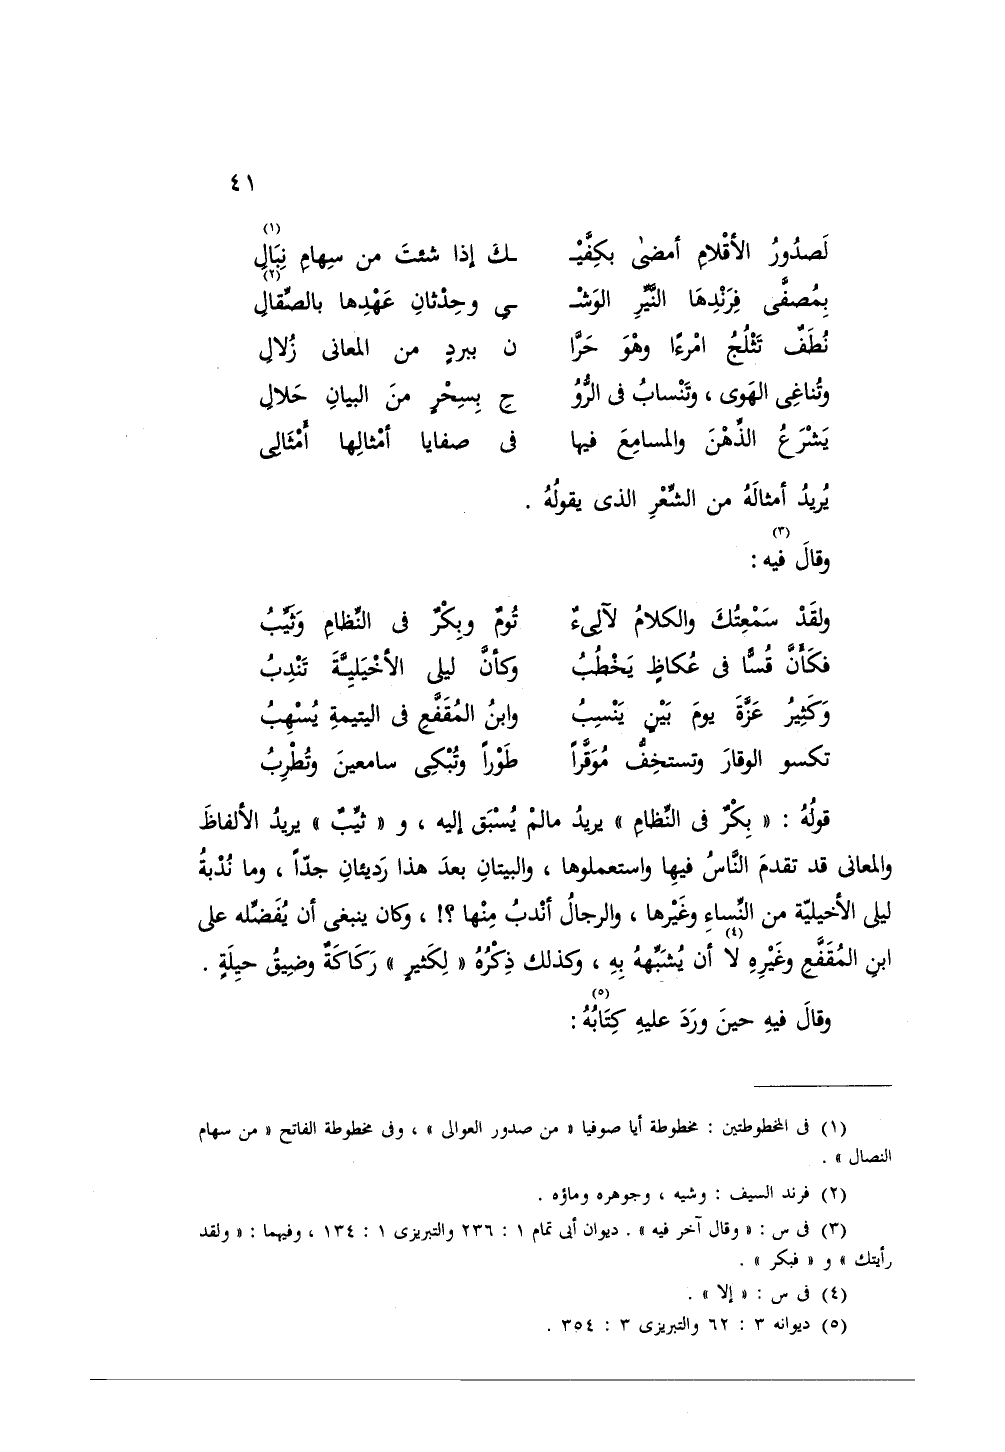 ٤١
لَصدُورُ الأقْلامِ أمضىٰ بكِفَّيْـ ـكَ إذا شئتَ من سِهامِ نِبَالِ (١)
بِمُصفَّى فِرَنْدِهَا النَّيِّرِ الوَشْـ ـيِ وحِدْثانِ عَهْدِها بالصِّقالِ (٢)
نُطَفٌ تَثْلُجُ امْرءًا وهْوَ حَرَّا ن ببردٍ من المعانى زُلالِ
وتُناغِى الهَوى ، وتَنْسابُ فى الرُّوُ جِ بِسِحْرٍ منَ البيانِ حَلالِ
يَشْرَعُ الذِّهْنَ والمسامِعَ فيها فى صفايا أمْثالِها أَمْثَالِى
يُريدُ أمثالَهُ من الشِّعْرِ الذى يقولُهُ .
وقالَ فيه (٣) :
ولقَدْ سَمْعِتُكَ والكلامُ لآلِىءٌ تُومٌ وبِكْرٌ فى النِّظامِ وَثَيِّبُ
فكَأَنَّ قُسًّا فى عُكاظٍ يَخْطُبُ وكأنَّ ليلى الأخْيَليَّةَ تَنْدِبُ
وَكَثِيرُ عَزَّةَ يومَ بَيْنٍ يَنْسِبُ وابنُ المُقَفَّعِ فى اليتيمةِ يُسْهِبُ
تكسو الوقارَ وتستخِفُّ مُوَقَّراً طَوْراً وتُبْكِى سامعينَ وتُطْرِبُ
قولُهُ : « بِكْرٌ فى النِّظامِ » يريدُ مالمْ يُسْبَق إليه ، و « ثيِّبٌ » يريدُ الألفاظَ
والمعانى قد تقدمَ النَّاسُ فيهِا واستعملوها ، والبيتانِ بعدَ هذا رَديئانِ جدّاً ، وما نُدْبةُ
ليلى الأخيليّة من النِّساءِ وغَيْرها ، والرجالُ أنْدبُ مِنْها ؟! ، وكان ينبغى أن يُفَضِّله على
ابنِ المُقَفَّعِ وغَيْرِهِ لا (٤) أن يُشَبِّههُ بِهِ ، وكذلك ذِكْرُهُ « لِكَثيرٍ » رَكَاكَةٌ وضيِقُ حيِلَةٍ .
وقالَ فيهِ حينَ ورَدَ عليهِ كِتَابُهُ (٥) :
(١) فى المخطوطتين : مخطوطة أيا صوفيا « من صدور العوالى » ، وفى مخطوطة الفاتح « من سهام
النصال » .
(٢) فرند السيف : وشيه ، وجوهره وماؤه .
(٣) فى س : « وقال آخر فيه » . ديوان أبى تمام ١ : ٢٣٦ والتبريزى ١ : ١٣٤ ، وفيهما : « ولقد
رأيتك » و « فبكر » .
(٤) فى س : « إلا » .
(٥) ديوانه ٣ : ٦٢ والتبريزى ٣ : ٣٥٤ .